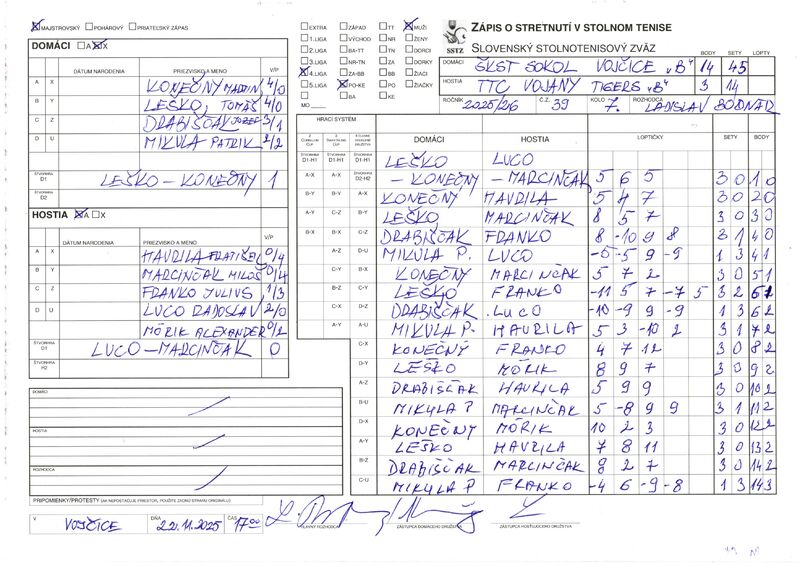 MAJSTROVSKÝ POHÁROVÝ PRIATEĽSKÝ ZÁPAS
DOMÁCI A X
DÁTUM NARODENIA PRIEZVISKO A MENO V/P
A X KONEČNÝ MARTIN 4/0
B Y LEŠKO TOMÁŠ 4/0
C Z DRABIŠČAK JOZEF 3/1
D U MIKULA PATRIK 2/2
ŠTVORHRA D1 LEŠKO - KONEČNÝ 1
ŠTVORHRA D2
HOSTIA A X
DÁTUM NARODENIA PRIEZVISKO A MENO V/P
A X HAVRILA FRATIŠEK 0/4
B Y MARCINČAK MILOŠ 0/4
C Z FRANKO JULIUS 1/3
D U LUCO RADOSLAV 2/0
MÖRIK ALEXANDER 0/2
ŠTVORHRA LUCO - MARCINČAK 0
ŠTVORHRA H2
DOMÁCI
HOSTIA
ROZHODCA
PRIPOMIENKY/PROTESTY (AK NEPOSTAČUJE PRIESTOR, POUŽITE ZADNÚ STRANU ORIGINÁLU)
V VOJČICE DŇA 22.11.2025 ČAS 17:00
EXTRA ZÁPAD TT MUŽI
1.LIGA VÝCHOD NR ŽENY
2.LIGA BA-TT TN DORCI
3.LIGA NR-TN ZA DORKY
4.LIGA ZA-BB BB ŽIACI
5.LIGA PO-KE PO ŽIAČKY
BA KE
MO
SSTZ
ZÁPIS O STRETNUTÍ V STOLNOM TENISE
SLOVENSKÝ STOLNOTENISOVÝ ZVÄZ
BODY SETY LOPTY
DOMÁCI ŠKST SOKOL VOJČICE "B" 14 45
HOSTIA TTC VOJANY TIGERS "B" 3 14
ROČNÍK 2025/26 Č.Z. 39 KOLO 7. ROZHODCA LADISLAV BODNÁR
HRACÍ SYSTÉM
DOMÁCI HOSTIA LOPTIČKY SETY BODY
ŠTVORHRA D1-H1 ŠTVORHRA D1-H1 ŠTVORHRA D1-H1 LEŠKO LUCO
A-X ŠTVORHRA D2-H2 - KONEČNÝ - MARCINČAK 5 6 5 3 0 1 0
B-Y B-Y A-X KONEČNÝ HAVRILA 5 4 7 3 0 2 0
A-Y C-Z B-Y LEŠKO MARCINČAK 8 5 7 3 0 3 0
B-X B-X C-Z DRABIŠČAK FRANKO 8 -10 9 8 3 1 4 0
A-Z D-U MIKULA P. LUCO -5 -5 9 -9 1 3 4 1
C-Y B-X KONEČNÝ MARCINČAK 5 7 2 3 0 5 1
B-Z C-Y LEŠKO FRANKO -11 5 7 -7 5 3 2 6 1
C-X D-Z DRABIŠČAK LUCO -10 -9 9 -9 1 3 6 2
A-Y A-U MIKULA P. HAVRILA 5 3 -10 2 3 1 7 2
C-X KONEČNÝ FRANKO 4 7 12 3 0 8 2
D-Y LEŠKO MÖRIK 8 9 7 3 0 9 2
A-Z DRABIŠČAK HAVRILA 5 9 9 3 0 10 2
B-U MIKULA P MARCINČAK 5 -8 9 9 3 1 11 2
D-X KONEČNÝ MÖRIK 10 2 3 3 0 12 2
A-Y LEŠKO HAVRILA 7 8 11 3 0 13 2
B-Z DRABIŠČAK MARCINČAK 8 2 7 3 0 14 2
C-U MIKULA P FRANKO -4 6 -9 -8 1 3 14 3
HLAVNÝ ROZHODCA ZÁSTUPCA DOMÁCEHO DRUŽSTVA ZÁSTUPCA HOSŤUJÚCEHO DRUŽSTVA